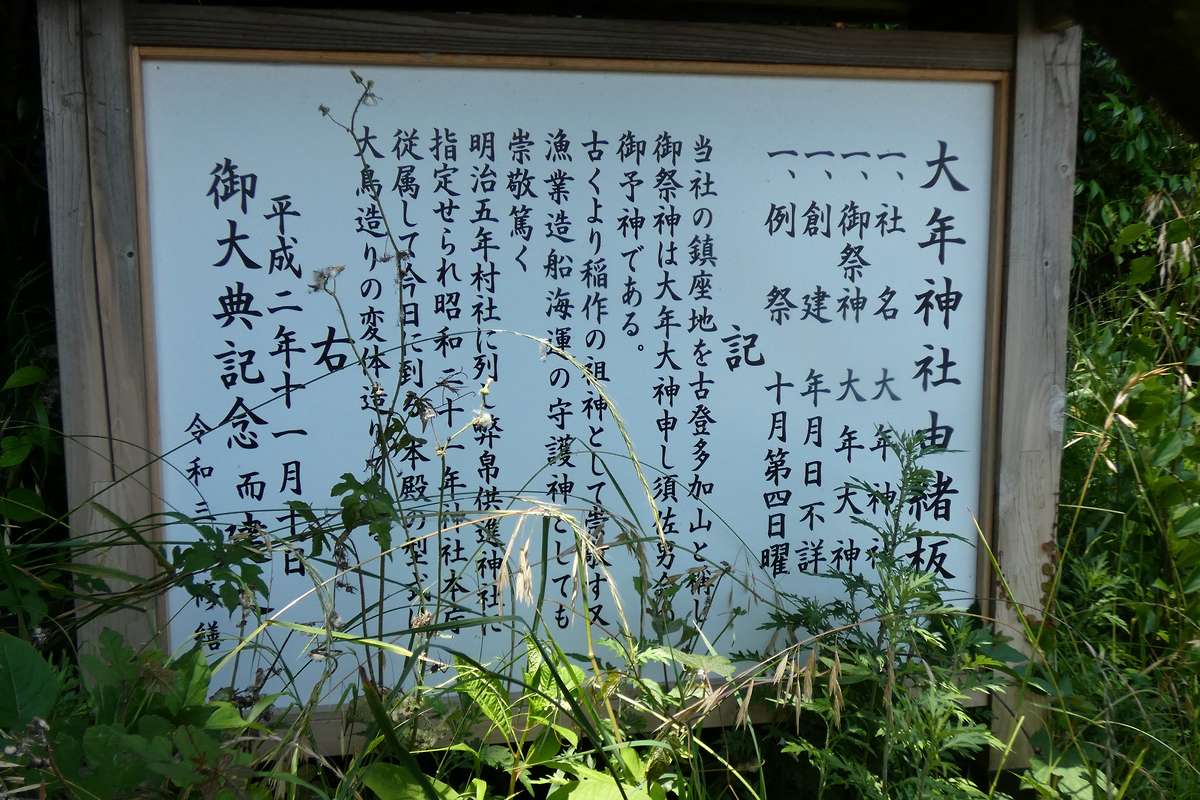 大年神社由緒板
一、社名 大年神社
一、御祭神 大年大神
一、創建 年月日不詳
一、例祭 十月第四日曜
記
当社の鎮座地を古登多加山と称し
御祭神は大年大神申し須佐男命
御予神である。
古くより稲作の祖神として崇敬す又
漁業造船海運の守護神としても
崇敬篤く
明治五年村社に列し幣帛供進神社に
指定せられ昭和二十一年社本庁
従属して今日に到る本殿の型式
大鳥造りの変体造り
右
平成二年十一月十日
御大典記念而建
令和 修繕